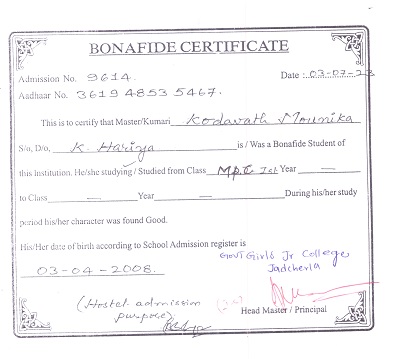 BONAFIDE CERTIFICATE
Admission No. 9614.
Date : 03-07-23
Aadhaar No. 3619 4853 5467.
This is to certify that Master/Kumari Kodavath Mounika
S/o, D/o, K. Hariya is / Was a Bonafide Student of
this institution. He/she studying / Studied from Class M.P.C Ist Year —
to Class — Year — During his/her study
period his/her character was found Good.
His/Her date of birth according to School Admission register is
03-04-2008.
GOVT Girls Jr College
Jadcherla
(Hostel admission
purpose)
Head Master / Principal